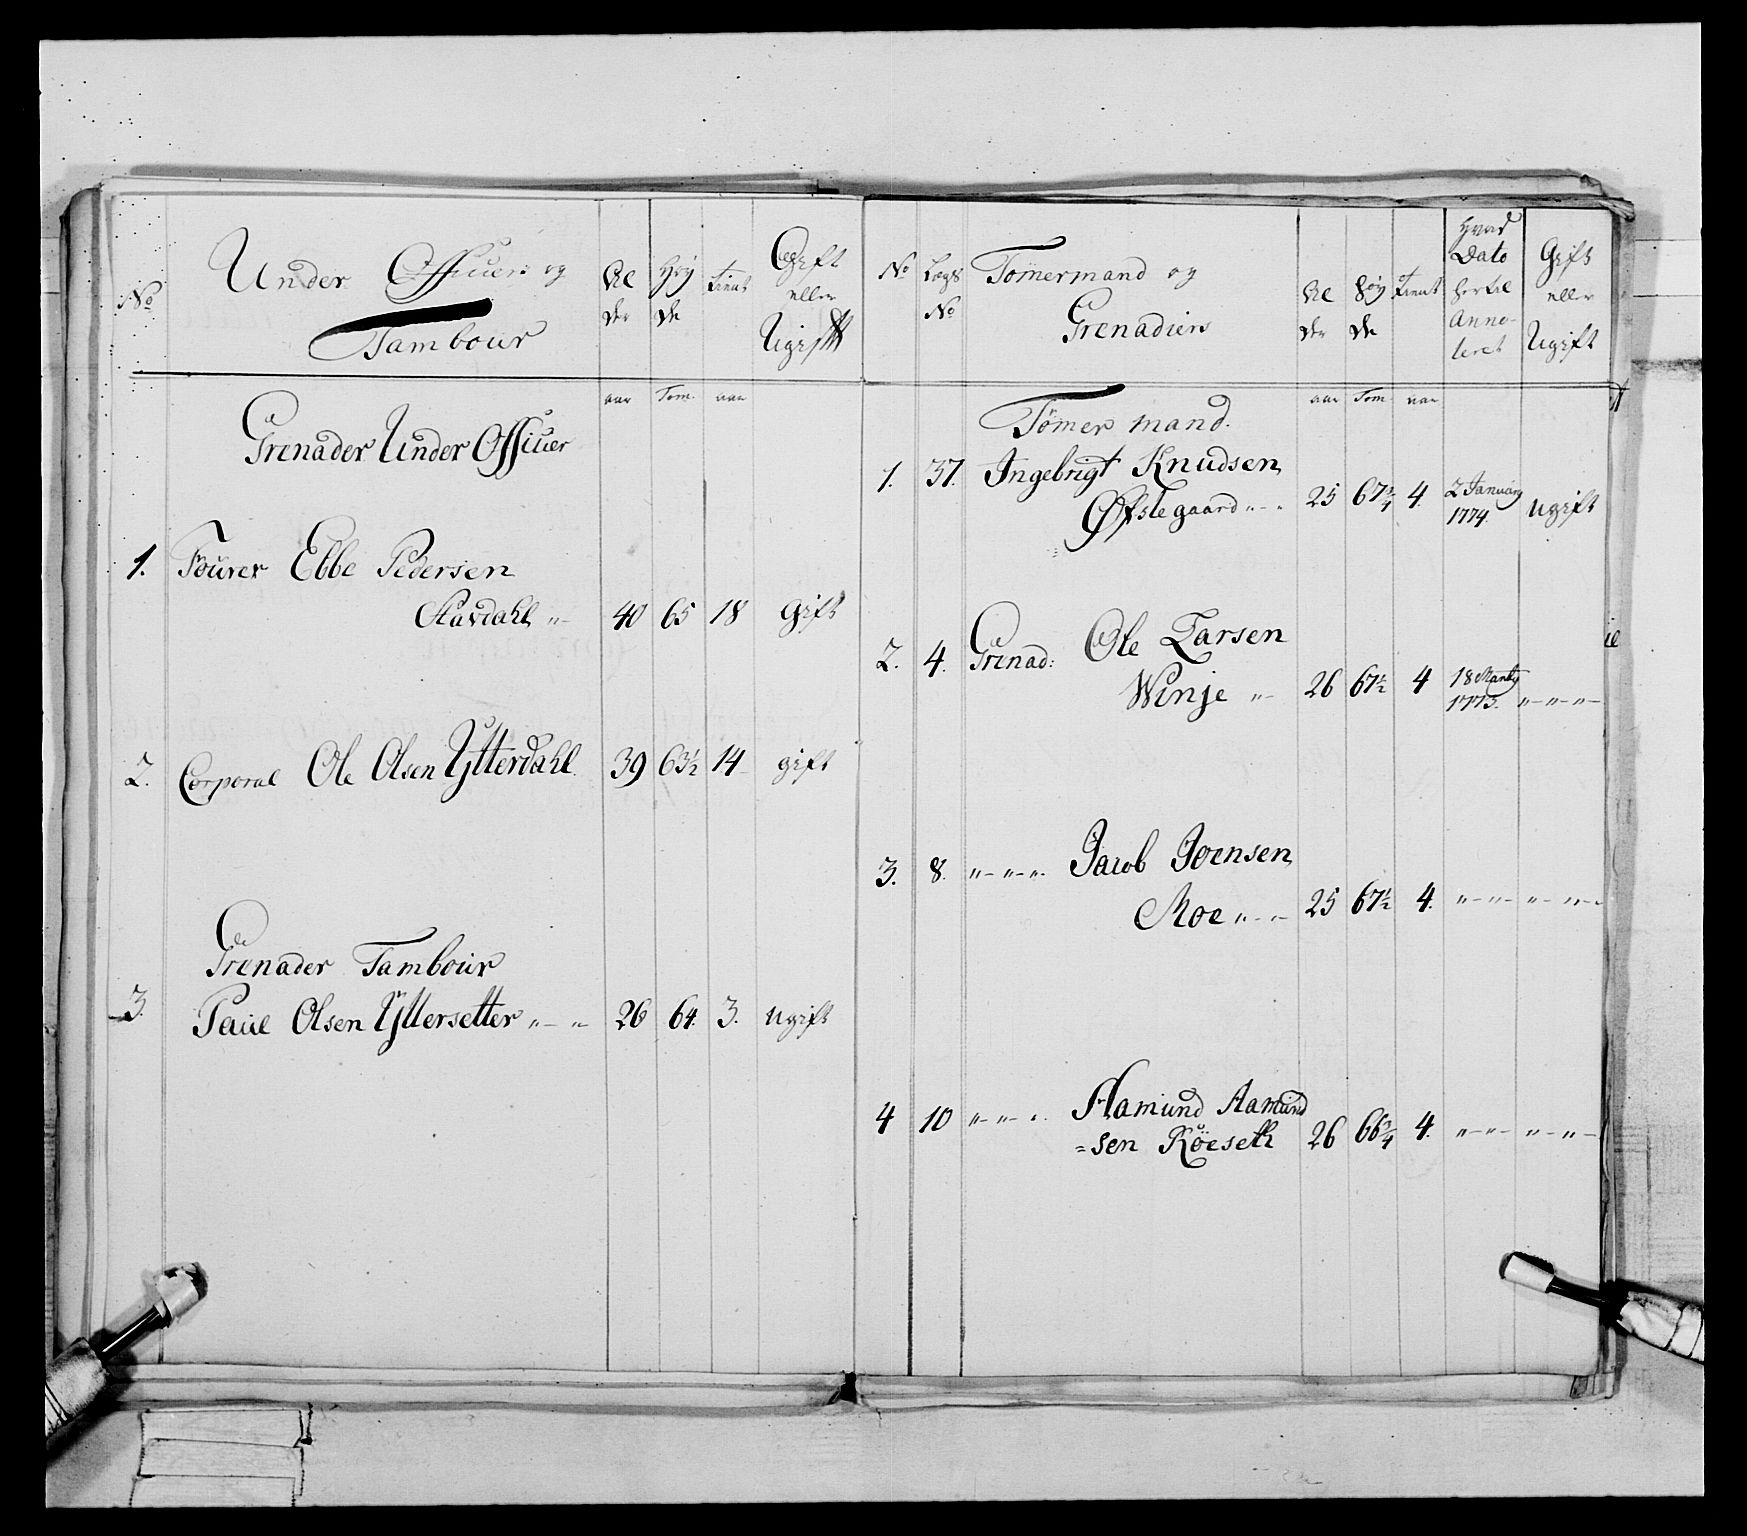 No
Under Officiers og
Tambour
Al
der
Høy
de
tient
Gift
eller
Ugift
aar Tom. aar
Grenader Under Officier
1. Fourer Ebbe Pedersen
Stavdahl „- 40 65 18 Gift
2. Corporal Ole Olsen Ytterdahl 39 63½ 14 gift
Grenader Tambour
3. Paul Olsen Yttersetter „-„ 26 64. 3. Ugift
No
Lægs
No
Tømermand og
Grenadiers
Al
der
Høy
de
tient
Hvad
Dato
hertil
Anno-
teret
Gift
eller
Ugift
aar Tom. aar
Tømer mand.
1. 37. Ingebrigt Knudsen
Øfstegaard „-„ 25 67¾ 4. 2 January
1774. Ugift
2. 4. Grenad: Ole Larsen
Winje „- 26 67½ 4 18 Marty
1775. „-„-„-
3. 8. „-„-„- Jacob Joensen
Moe „-„- 25 67½ 4. „-„- „-„-
4 10 „-„-„ Aamund Aamund
=sen Röeseth 26 66¾ 4. „-„- „-„-